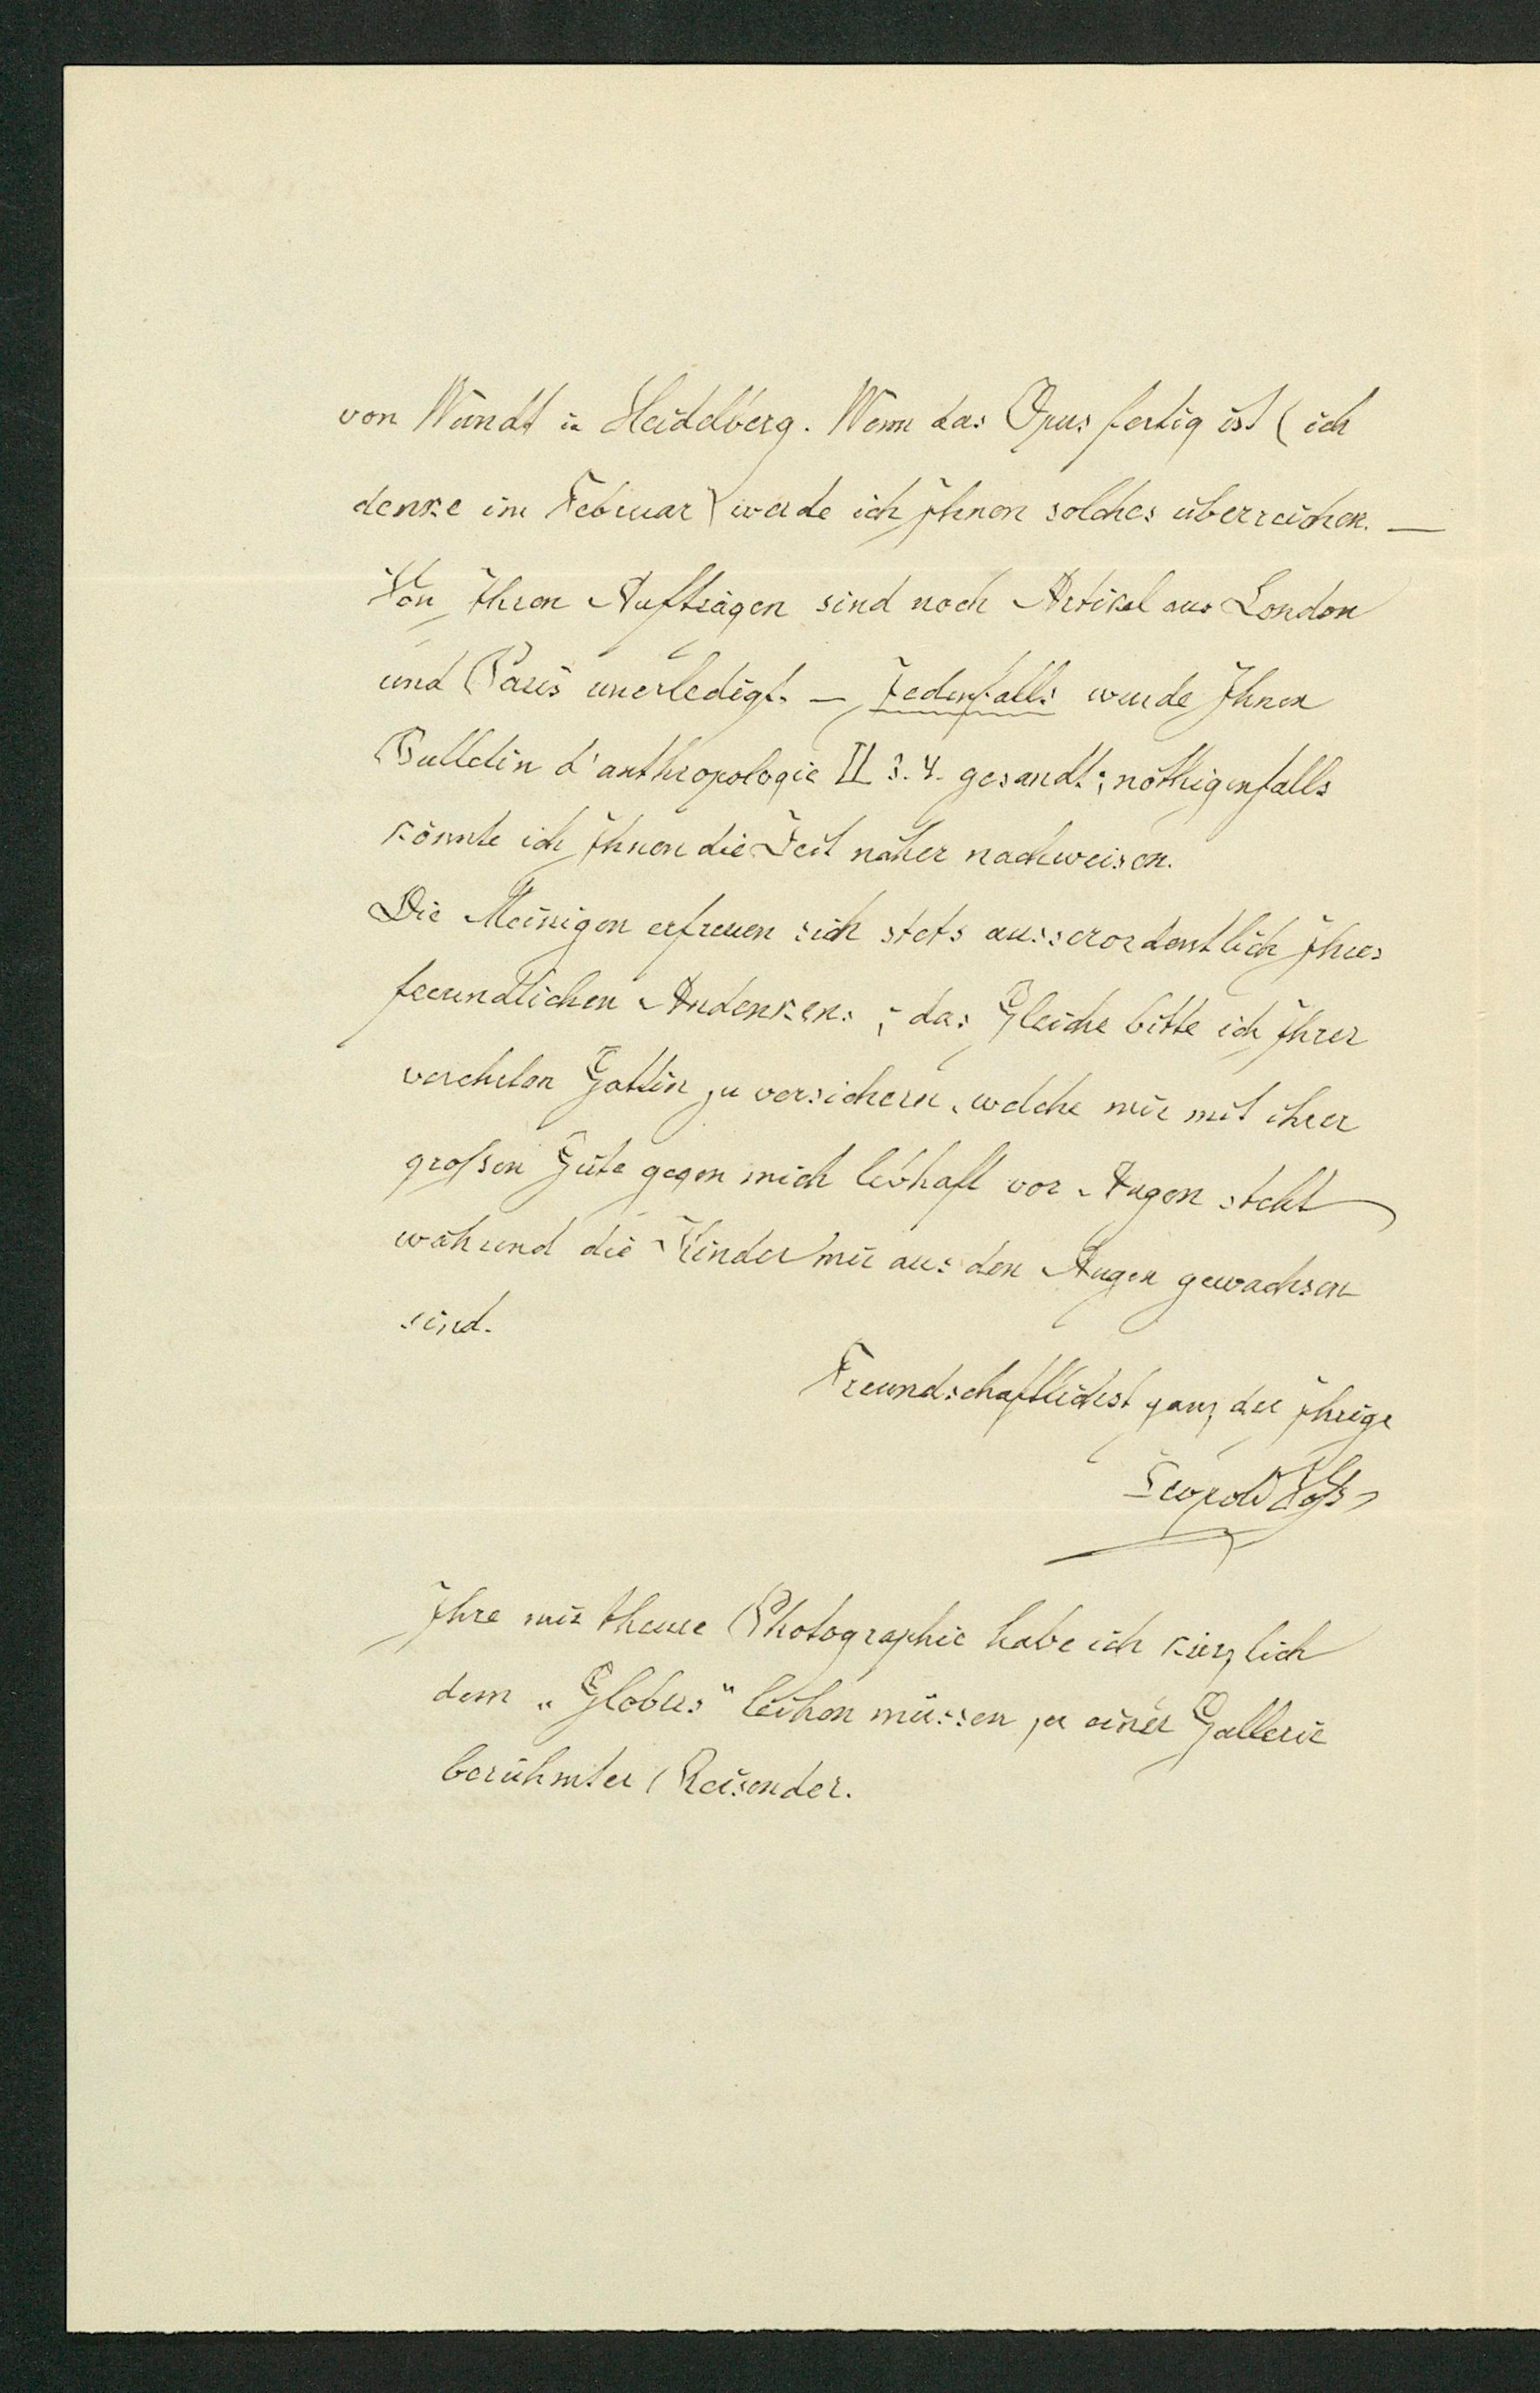 von Wundt in Heidelberg. Wenn das Opus fertig ist (ich
denke im Februar) werde ich Ihnen solches überreichen. —
Von Ihren Aufträgen sind noch Artikel aus London
und Paris unerledigt. — Jedenfalls wurde Ihnen
Bulletin d'anthropologie II 3. 4. gesandt; nöthigenfalls
könnte ich Ihnen die Zeit näher nachweisen.
Die Meinigen erfreuen sich stets ausserordentlich Ihres
freundlichen Andenkens; das Gleiche bitte ich Ihrer
verehrten Gattin zu versichern, welche mir mit ihrer
großen Güte gegen mich lebhaft vor Augen steht
während die Kinder mir aus den Augen gewachsen
sind.
Freundschaftlichst ganz der Ihrige
Leopold Voß
Ihre mir theure Photographie habe ich kürzlich
dem „Globus“ leihen müssen zu einer Gallerie
berühmter Reisender.